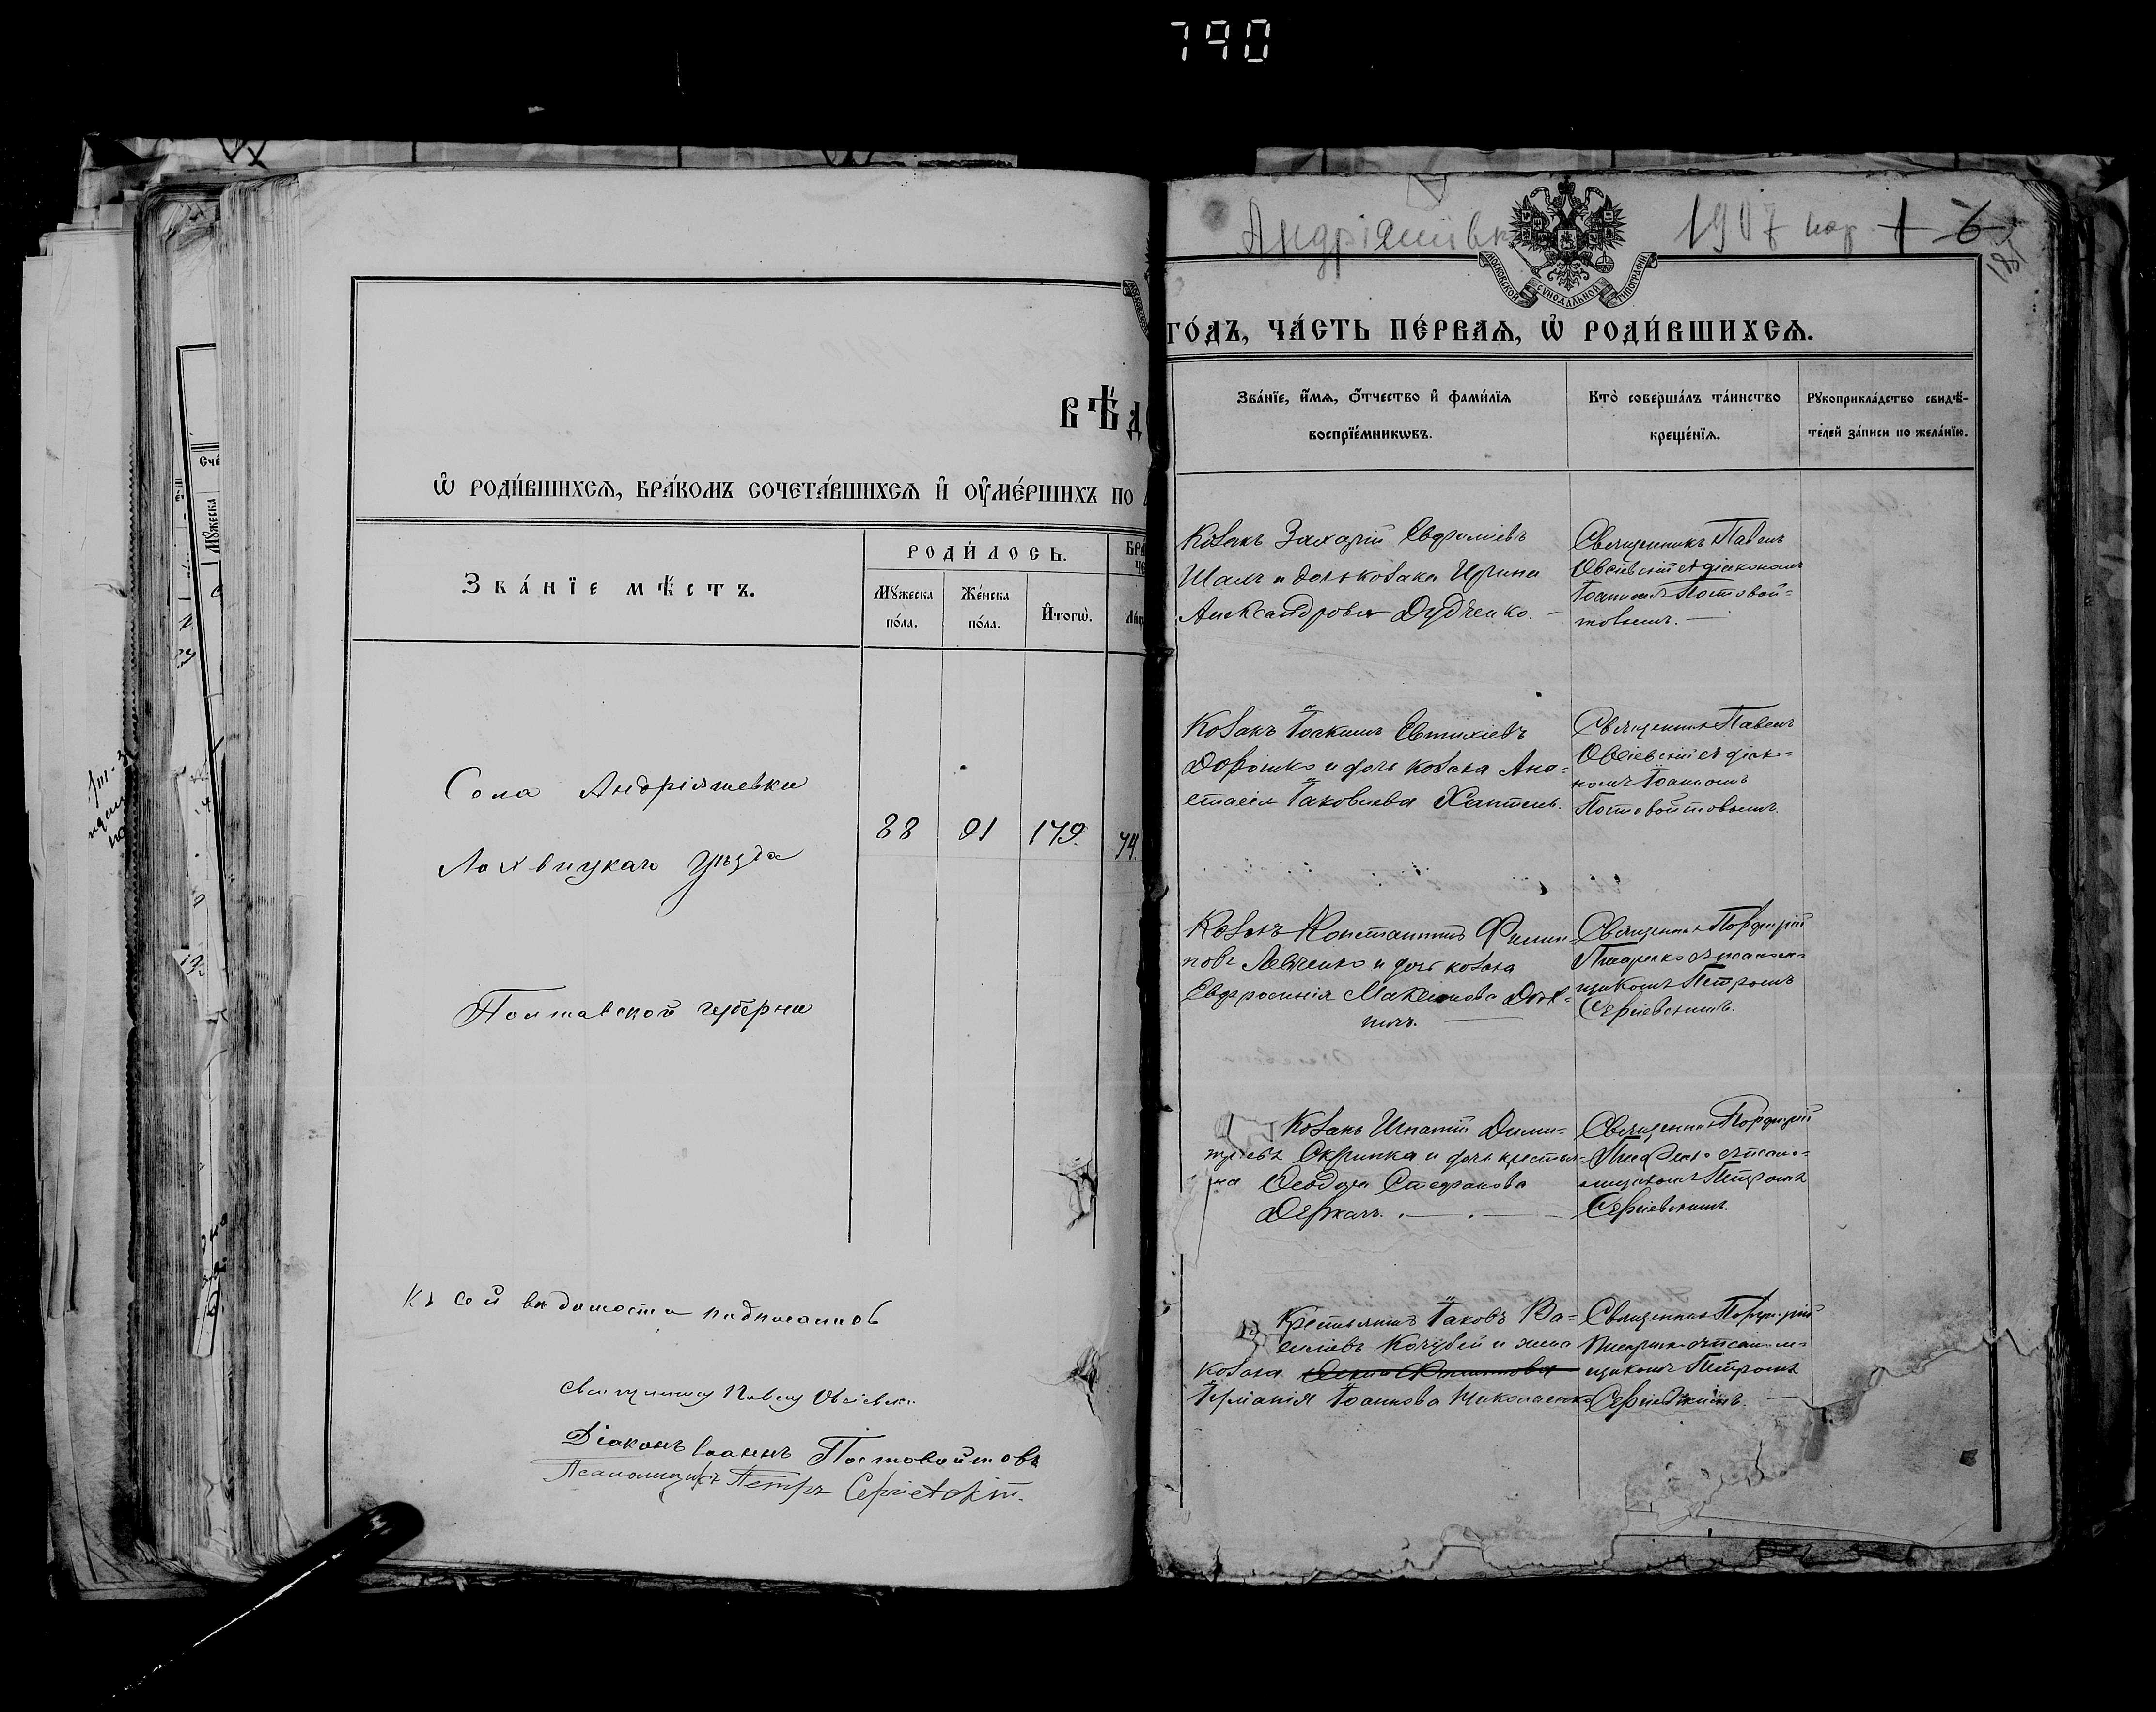 790
ВѢД
Ѡ҆ РОДИ́ВШИХСѦ, БРА́КОМЪ СОЧЕТА́ВШИХСѦ И҆ ОУ҆МЕ́РШИХЪ ПО
ЗВА́НЇЕ МѢ́СТЪ.
РОДИ́ЛОСЬ.
Мꙋ́жеска по́ла.
Же́нска по́ла.
И҆того̀.
Села Андріяшевки
88 91 179. 74.
Лохвицкаго Уѣзда
Полтавской губерніи
Къ сей вѣдомости подписались
Священникъ Павелъ Овсіевскій
Діаконъ Іоаннъ Постовойтовъ
Псаломщикъ Петръ Сергіевскій.
Андріяшівка 1907 1-6
МОСКОВСКОЙ СѴНОДАЛЬНОЙ ТИПОГРАФІИ
ГО́ДЪ, ЧА́СТЬ ПЕ́РВАѦ, Ѡ҆ РОДИ́ВШИХСѦ.
Зва́нїе, и҆́мѧ, ѻ҆́тчество и҆ фами́лїѧ
воспрїе́мникѡвъ.
Кто̀ соверша́лъ та́инство
креще́нїѧ.
Рꙋкоприкла́дство свидѣ́-
телей за́писи по жела́нїю.
Козакъ Захарій Евфиміевъ
Шаль и дочь козака Ирина
Александрова Дудченко.
Священникъ Павелъ
Овсіевскій съ діакономъ
Іоанномъ Постовой-
товымъ.
Козакъ Іоакимъ Евтихіевъ
Дорошко и дочь козака Ана-
стасія Іаковлева Хаптень.
Священникъ Павелъ
Овсіевскій съ діако-
номъ Іоанномъ
Постовойтовымъ.
Козакъ Константинъ Филип-
повъ Левченко и дочь козака
Евфросинія Максимова
Священникъ Порфирій
Писаренко съ псалом-
щикомъ Петромъ
Сергіевскимъ.
Козакъ Игнатій Дими-
тріевъ Скрипка и дочь крестья-
на Ѳеодора Стефанова
Деркачъ.
Священникъ Порфирій
Писаренко съ псало-
мщикомъ Петромъ
Сергіевскимъ.
Крестьянинъ Іаковъ Ва-
силіевъ Кочубей и жена
козака
Іуліанія Іоаннова Николаенко
Священникъ Порфирій
Писаренко съ псалом-
щикомъ Петромъ
Сергіевскимъ.